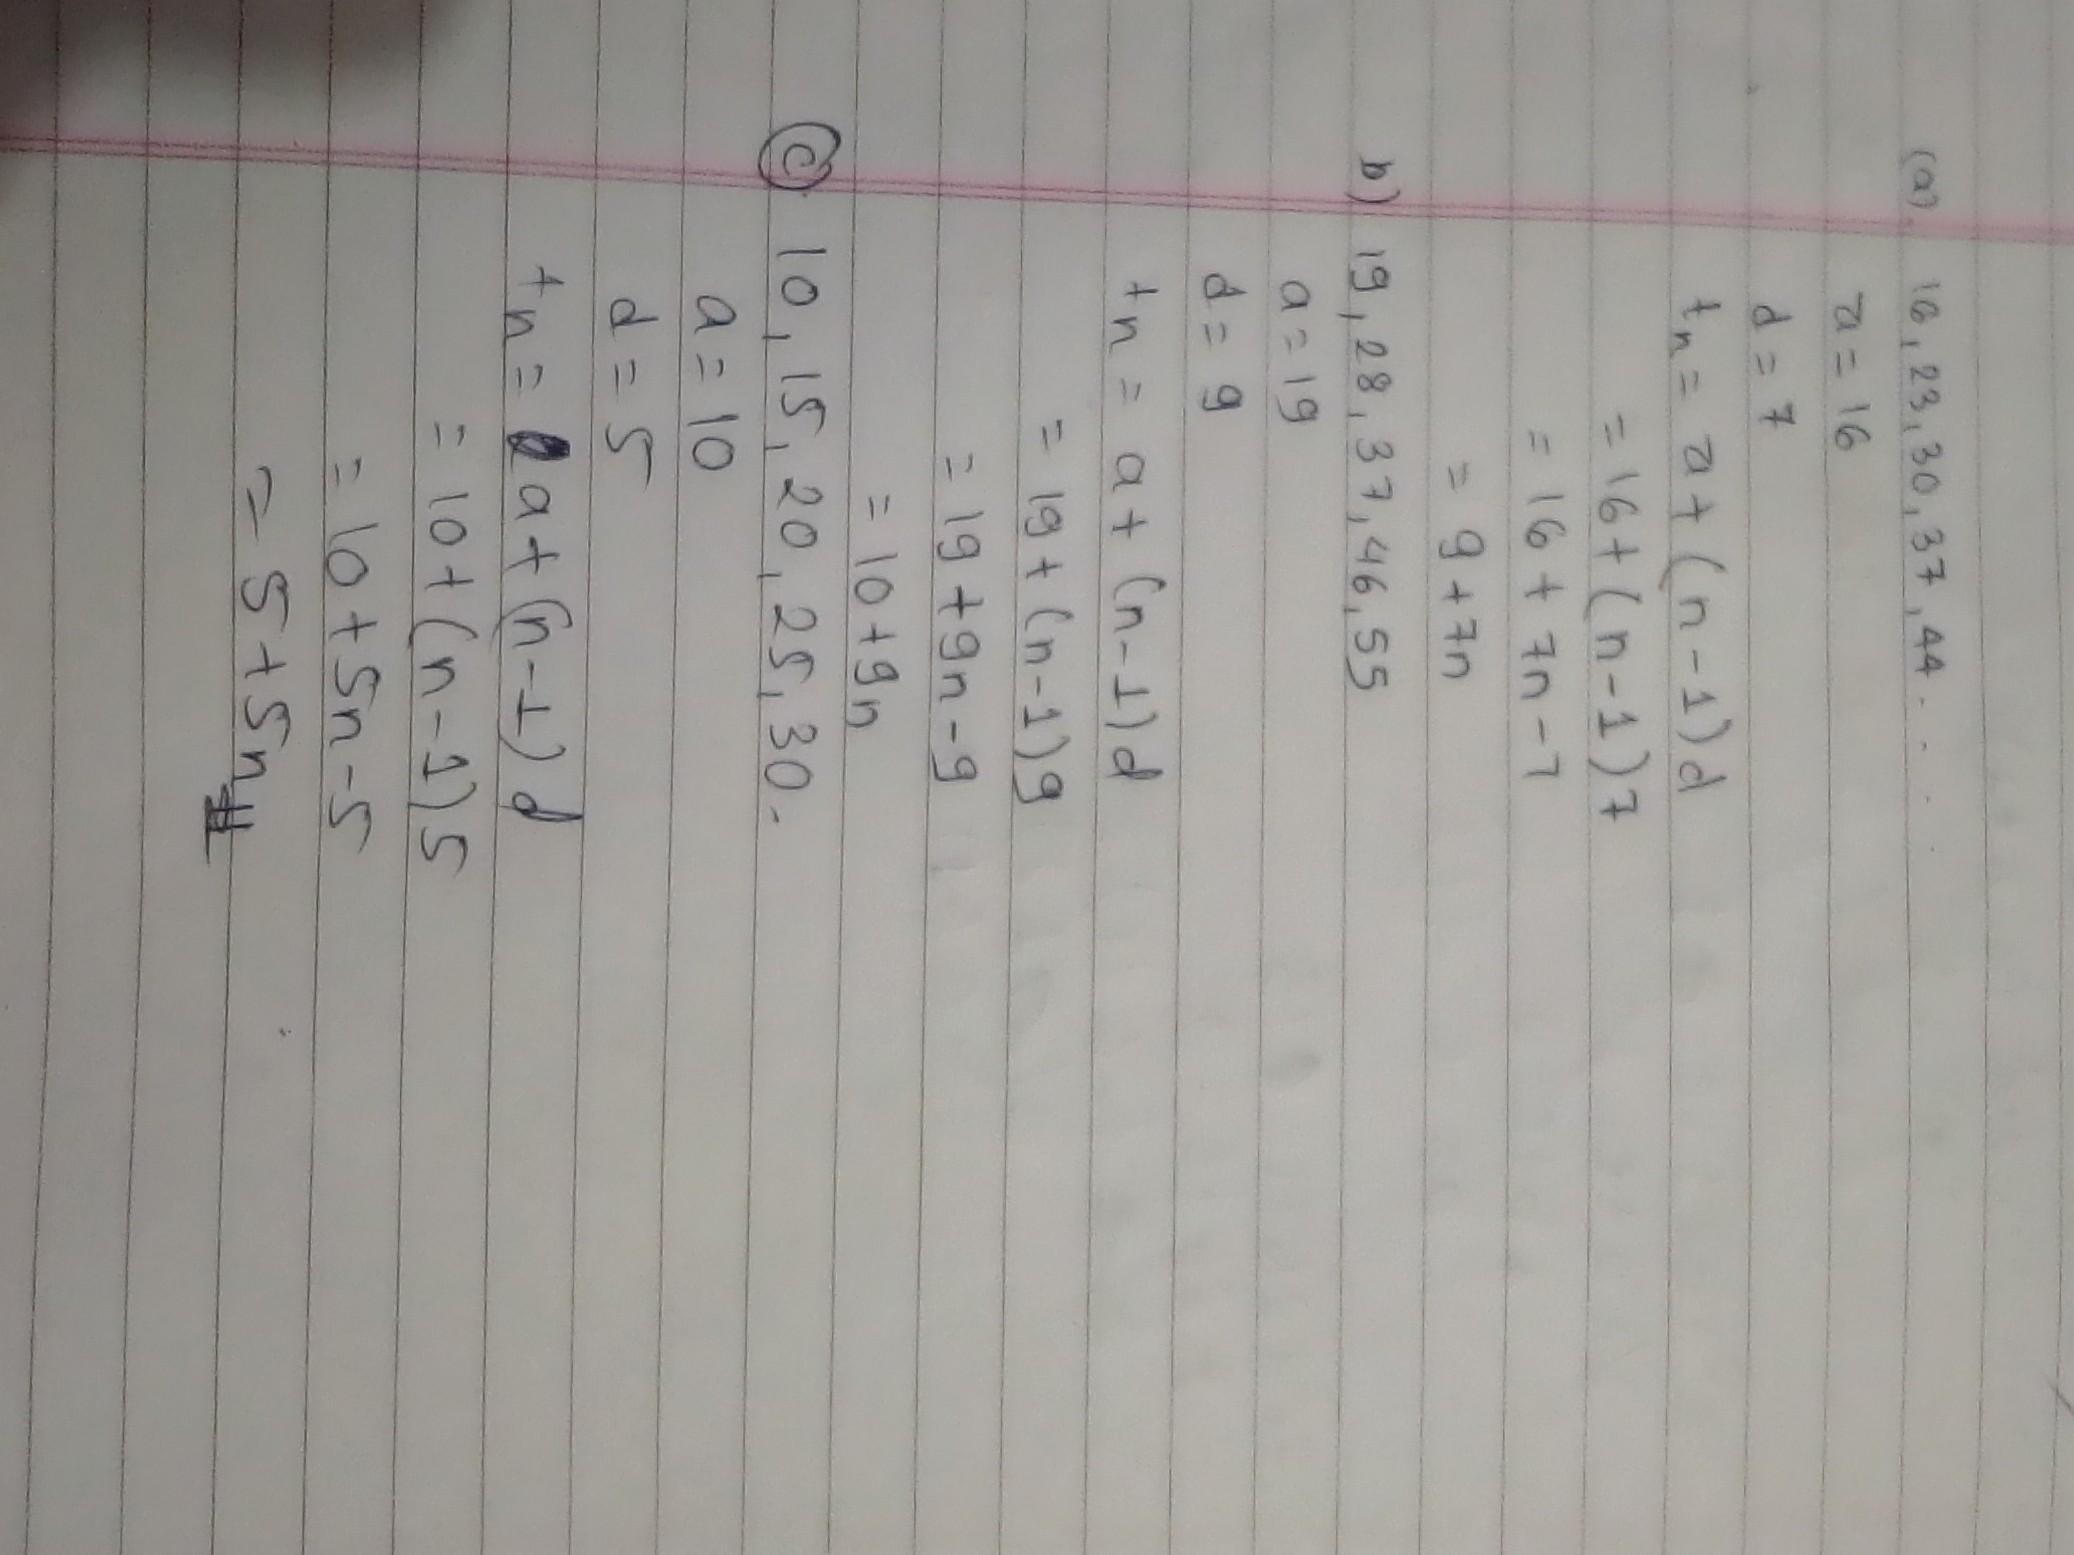 (a). 16, 23, 30, 37, 44. . . .
a = 16
d = 7
tn = a + (n - 1) d
= 16 + (n - 1) 7
= 16 + 7n - 7
= 9 + 7n
b) 19, 28, 37, 46, 55
a = 19
d = 9
tn = a + (n - 1) d
= 19 + (n - 1) 9
= 19 + 9n - 9
= 10 + 9n
(c) 10, 15, 20, 25, 30. -
a = 10
d = 5
tn = a + (n - 1) d
= 10 + (n - 1) 5
= 10 + 5n - 5
= 5 + 5n
#